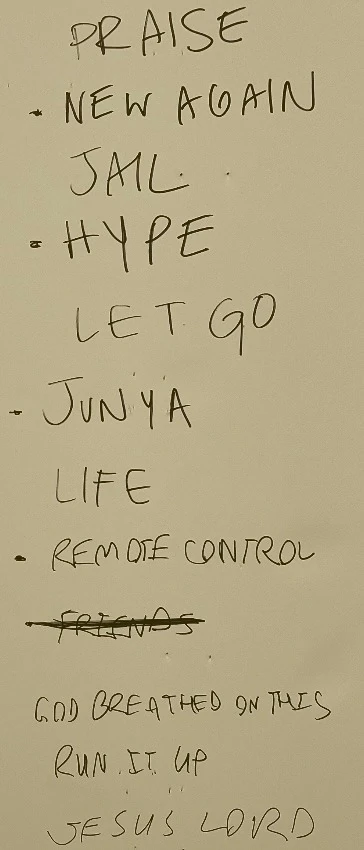 PRAISE
NEW AGAIN
JAIL
HYPE
LET GO
JUNYA
LIFE
REMOTE CONTROL
FRIENDS
GOD BREATHED ON THIS
RUN IT UP
JESUS LORD